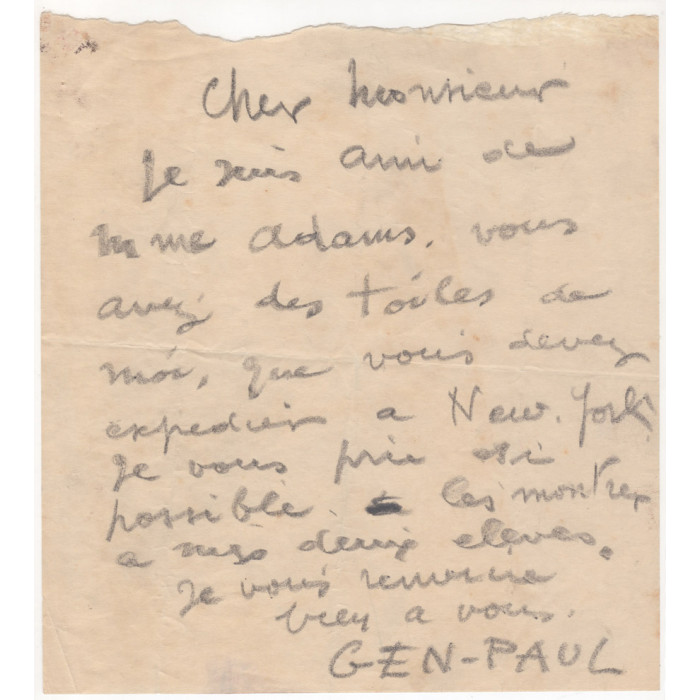 Cher Monsieur
Je suis ami de
Mme Adams. vous
avez des toiles de
moi, que vous devez
expedier a New. York
Je vous prie si
possible. les montrer
a mes deux eleves.
Je vous remercie
bien a vous.
GEN-PAUL